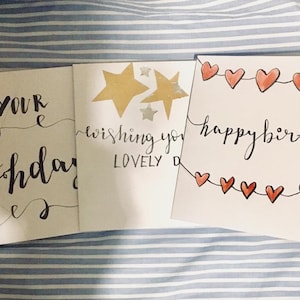 YOUR
hday
wishing you
LOVELY D
happybir